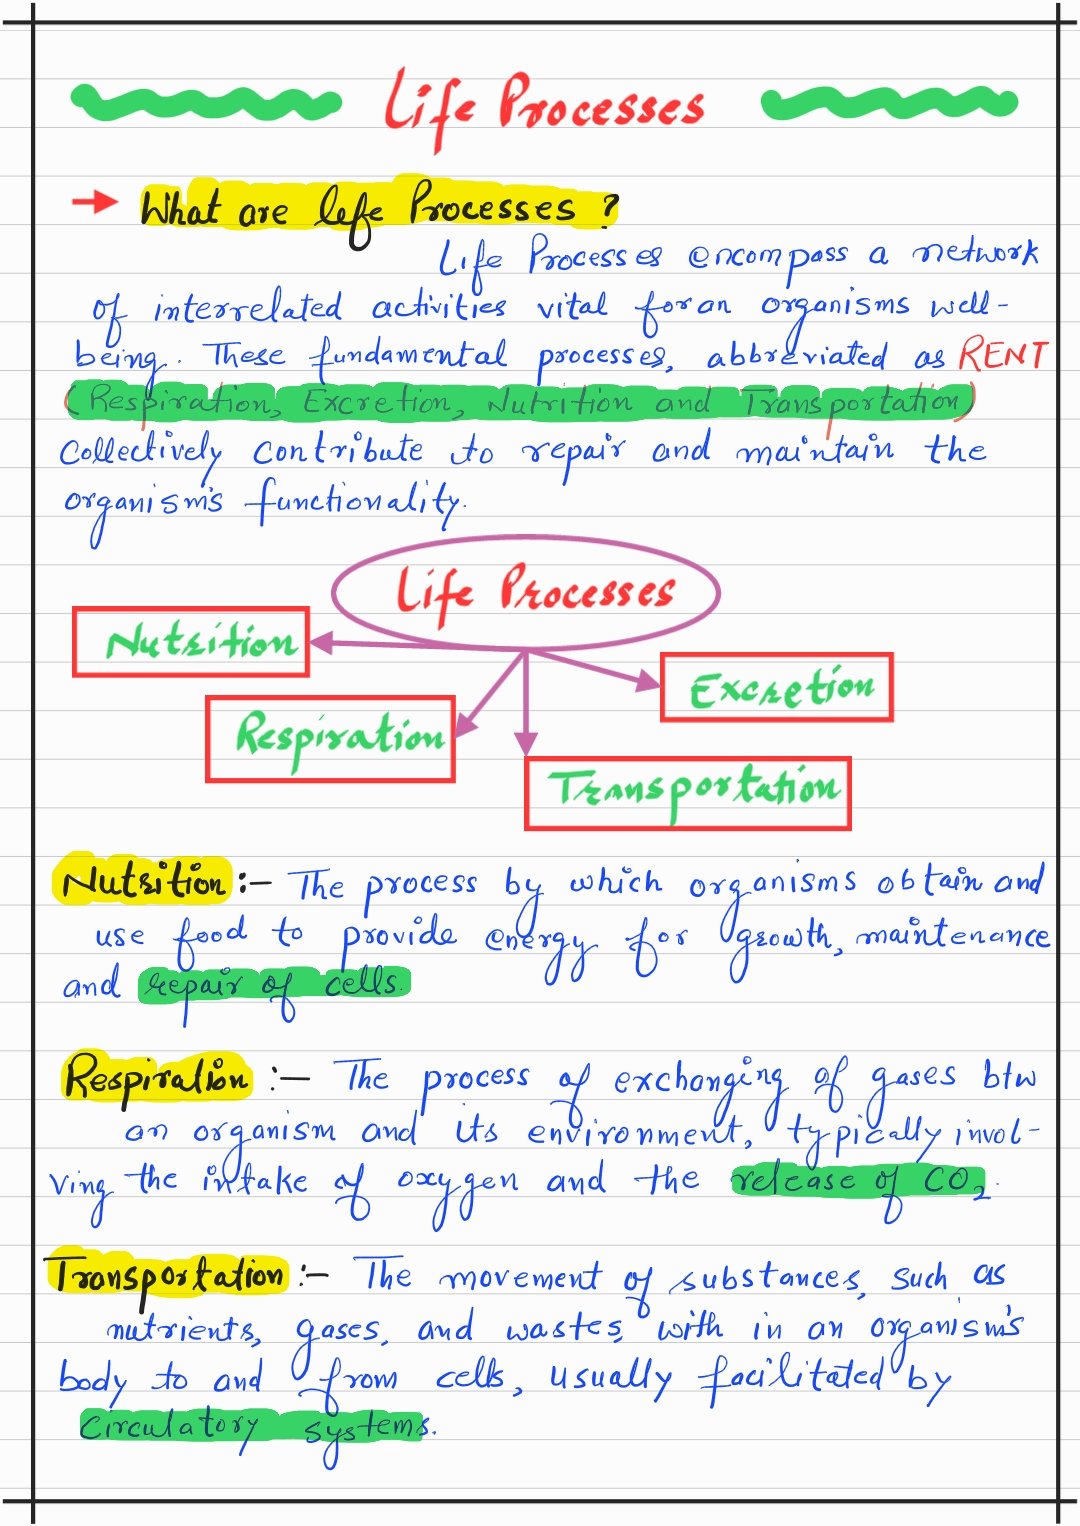 Life Processes
→ What are life Processes ?
Life Processes encompass a network
of interrelated activities vital for an organisms well-
being. These fundamental processes, abbreviated as RENT
(Respiration, Excretion, Nutrition and Transportation)
Collectively contribute to repair and maintain the
organism's functionality.
Life Processes
Nutrition
Excretion
Respiration
Transportation
Nutrition :- The process by which organisms obtain and
use food to provide energy for growth, maintenance
and repair of cells.
Respiration :- The process of exchanging of gases btw
an organism and its environment, typically invol-
ving the intake of oxygen and the release of CO₂.
Transportation :- The movement of substances, such as
nutrients, gases, and wastes, with in an organism's
body to and from cells, usually facilitated by
Circulatory systems.